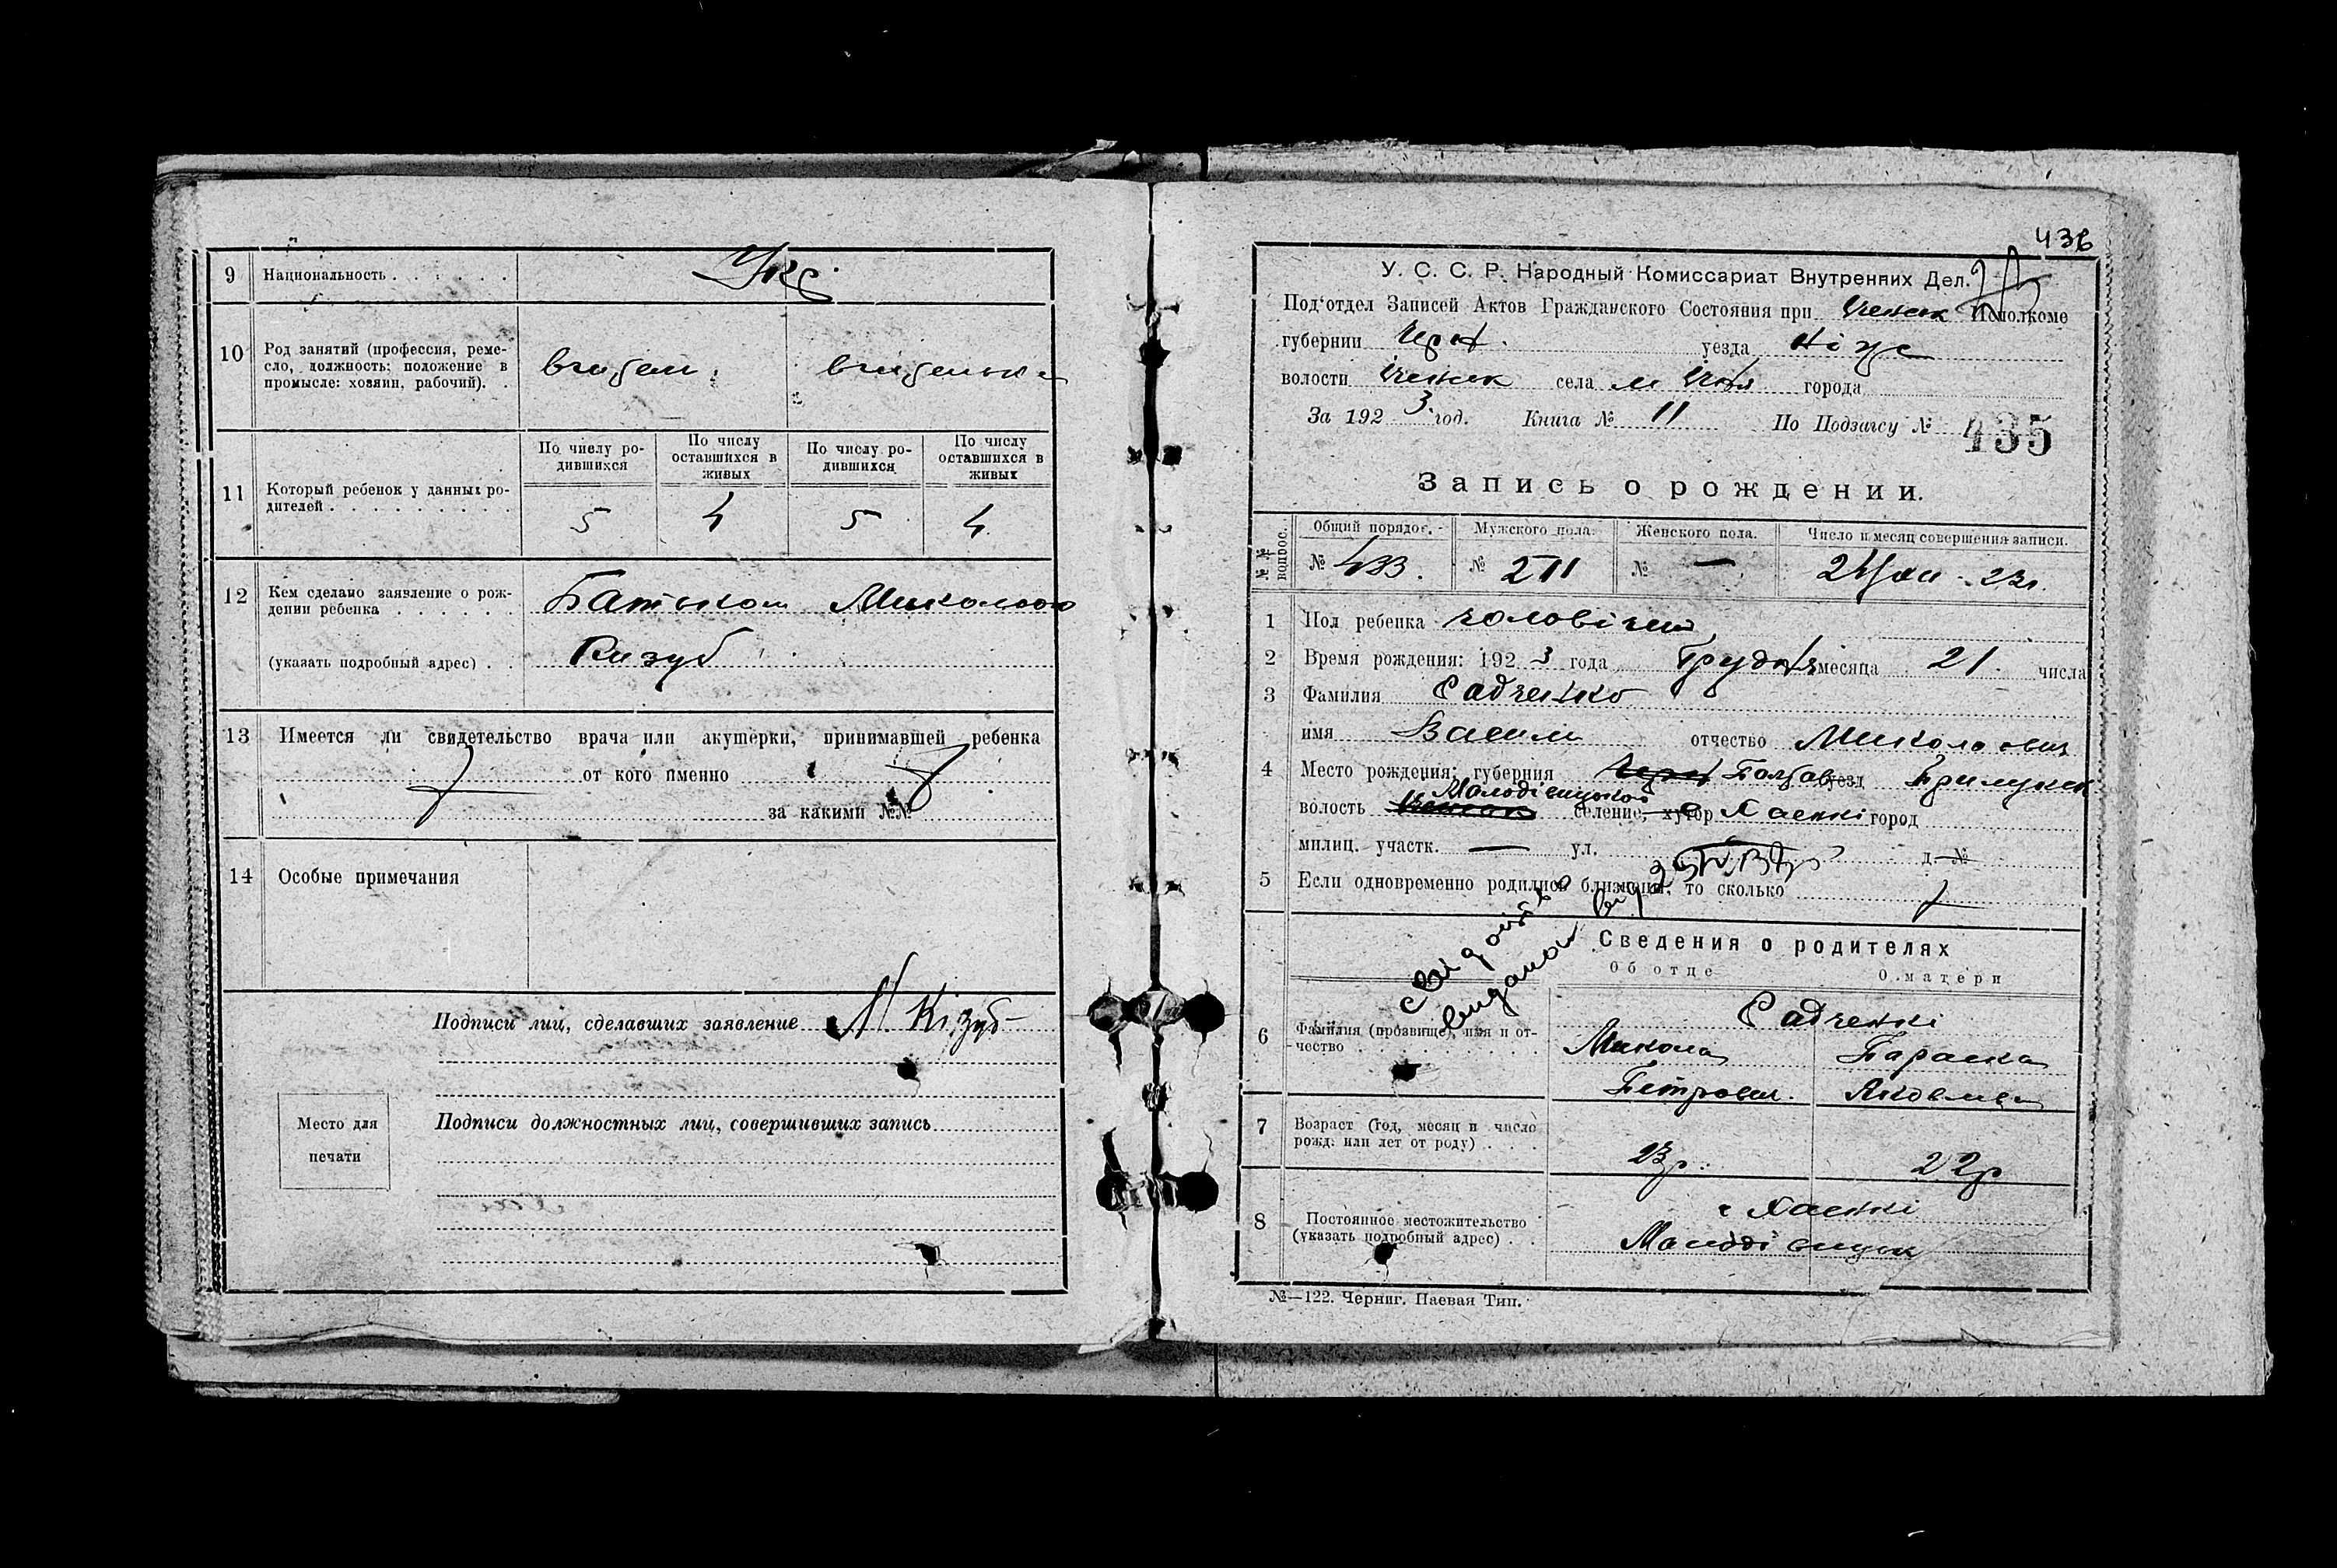 9 Национальность . . . . . . Укр.
10 Род занятий (профессия, реме-
сло, должность: положение в
промысле: хозяин, рабочий). .
вчитель вчителька
11 Который ребенок у данных ро-
дителей . . . . . . . . .
По числу ро-
дившихся
По числу
оставшихся в
живых
По числу ро-
дившихся
По числу
оставшихся в
живых
5 4 5 4
12 Кем сделано заявление о рож-
дении ребенка . . . . . . Батьком Миколою
(указать подробный адрес) . . Кизуб
13 Имеется ли свидетельство врача или акушерки, принимавшей ребенка
от кого именно
за какими №№
14 Особые примечания
Подписи лиц, сделавших заявление М Кізуб
Место для
печати
Подписи должностных лиц, совершивших запись
436
У. С. С. Р. Народный Комиссариат Внутренних Дел.
Под‘отдел Записей Актов Гражданского Состояния при Ичнянск Исполкоме
губернии Черн. уезда Ніж
волости Ичнянск села м Ичня города
За 1923 год. Книга № 11 По Подзагсу № 435
Запись о рождении.
№№ вопрос.
Общий порядок. Мужского пола. Женского пола. Число и месяц совершения записи.
№ 433. № № —
1 Пол ребенка чоловічий
2 Время рождения: 1923 года Грудня месяца 21. числа
3 Фамилия Садченко
имя Василь отчество Миколаович
4 Место рождения: губерния Черн Полтав уезд Прилуцьк
Малодівицькой
волость Ичнянск селение, хутор Хаенкі город
милиц. участк. — ул. д. №
5 Если одновременно родились близнецы, то сколько
Свидоцтво
видано
Сведения о родителях
Об отце О матери
6 Фамилия (прозвище), имя и от-
чество . . . . . . . . . .
Садченкі
Микола Параска
Петрович. Яковлевн
7 Возраст (год, месяц и число
рожд. или лет от роду) . . .
23р. 22р
8 Постоянное местожительство
(указать подробный адрес) . .
с Хаенкі
Малодівицьк
№—122. Черниг. Паевая Тип.